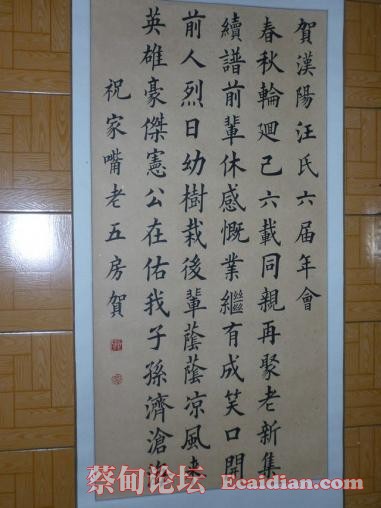 賀漢陽汪氏六届年會
春秋輪廻已六載同親再聚老新集
續譜前輩休感慨業繼有成笑口開
前人烈日幼樹栽後輩蔭蔭凉風來
英雄豪傑憲公在佑我子孫濟滄
祝家嘴老五房賀
蔡甸论坛 Ecaidian.com